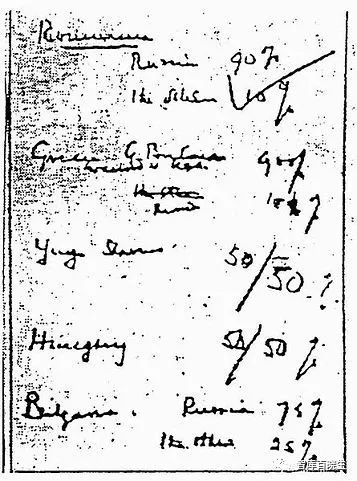 Roumania
Russia 90%
The others 10%
Greece G. Britain 90%
in accord with USA
Russia 10%
Yugo Slavia 50/50 %
Hungary 50/50 %
Bulgaria. Russia 75%
The others 25%